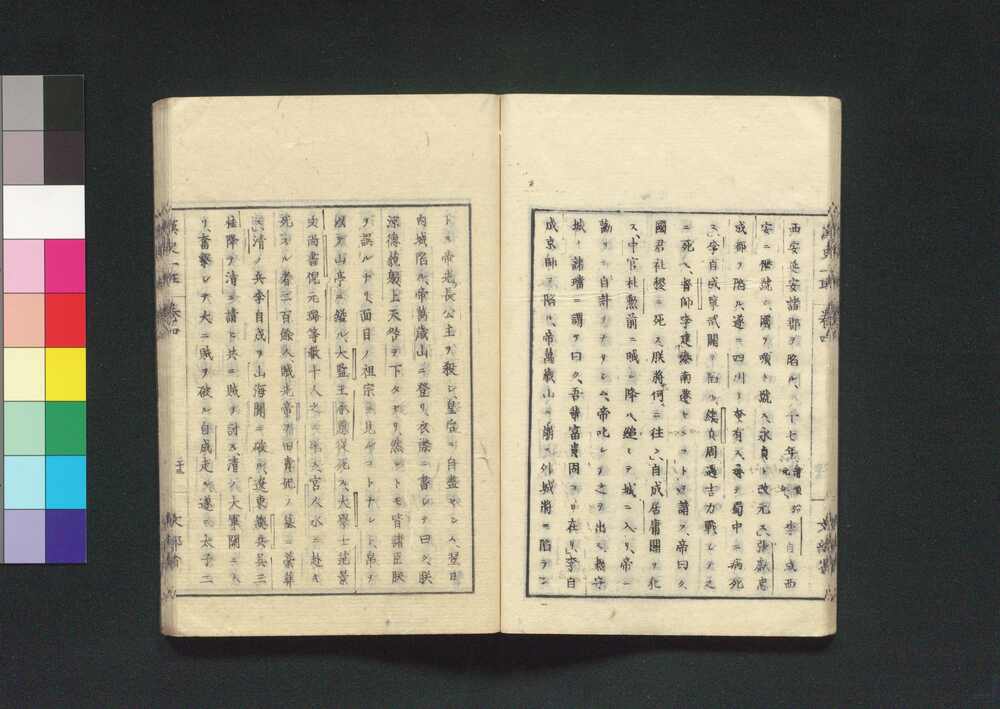 西安延安諸郡ヲ陷ル、十七年李自成西
安ニ僭號シ國ヲ順ト號ス永昌ト改元ス張獻忠
成都ヲ陷ル遂ニ四川ヲ奄有ス尋テ蜀中ニ病死
ス李自成寧武關ヲ陷ル總兵周遇吉力戰シテ之
ニ死ス督師李建泰南遷センコトヲ請フ帝曰ク
國君社稷ニ死ス朕將何ニ往ン自成居庸關ヲ犯
ス中官杜勲前ニ賊ニ降ル縋シテ城ニ入リ帝ニ
勸メテ自計ヲナサシム帝叱シテ之ヲ出ス守
城ノ諸璫ニ謂テ曰ク吾輩富貴固ヨリ在リ李自
成京師ヲ陷ル帝萬歳山ニ外城將ニ陷ラン
トス帝長公主ヲ殺シ皇后ニ自盡セシム翌日
内城陷ル帝萬歳山ニ登リ衣襟ニ書シテ曰ク朕
凉德藐躬上天咎ヲ下タセリ然レトモ皆諸臣朕
ヲ誤ルナリ面目ノ祖宗ニ見ユルコトナシト帛ヲ
以テ山亭ニ縊ル大監王承恩從死ス大學士范景
文尚書倪元璐等數十人之ニ死ス宮人水ニ赴キ
死スル者二百餘人賊先帝ヲ田貴妃ノ墓ニ藁葬
ス清ノ兵李自成ヲ山海關ニ破ル遼東總兵吳三
桂降ヲ清ニ請ヒ共ニ賊ヲ討ス清ノ大軍關ニ入
リ奮撃シテ大ニ賊ヲ破ル自成走ル遂ニ太子二
卷四